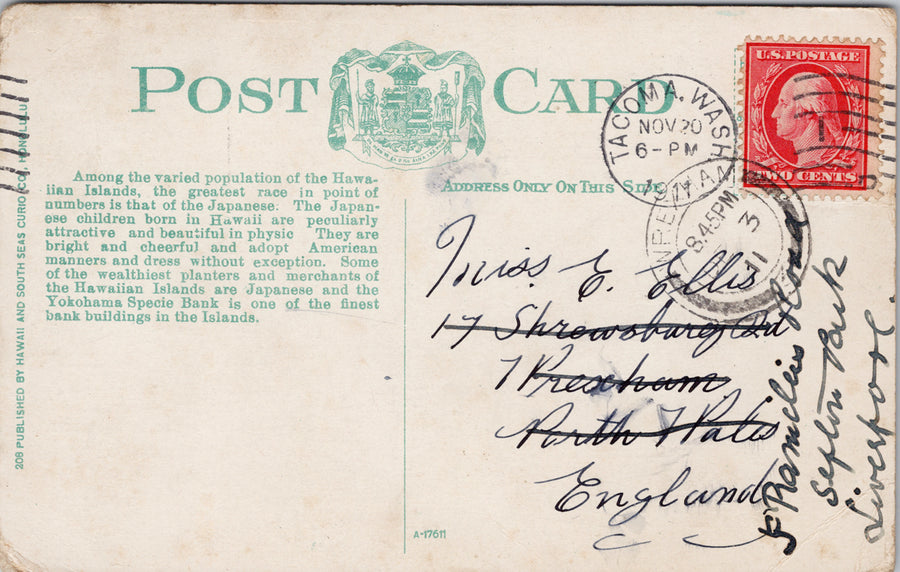 POST CARD
U.S. POSTAGE
TWO CENTS
TACOMA, WASH.
NOV 20
6-PM
1911
8.45PM
3
11
ADDRESS ONLY ON THIS SIDE
Among the varied population of the Hawa-
iian Islands, the greatest race in point of
numbers is that of the Japanese. The Japan-
ese children born in Hawaii are peculiarly
attractive and beautiful in physic They are
bright and cheerful and adopt American
manners and dress without exception. Some
of the wealthiest planters and merchants of
the Hawaiian Islands are Japanese and the
Yokohama Specie Bank is one of the finest
bank buildings in the Islands.
208 PUBLISHED BY HAWAII AND SOUTH SEAS CURIO CO., HONOLULU
Miss. E. Ellis
17 Shrewsbury Rd
Wrexham
North Wales
England
Road
Sefton Park
Liverpool.
A-17611